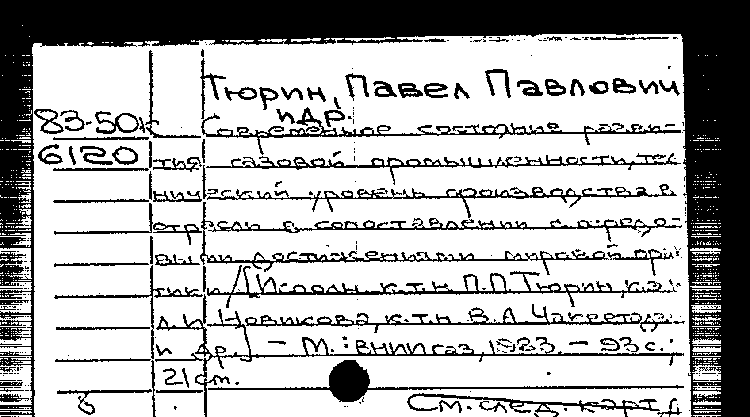 Тюрин, Павел Павлович
и др.
83-50к Современное состояние разви-
6120 тия газовой промышленности, тех
нический уровень производства в
отрасли в сопоставлении с передо-
выми достижениями мировой прак
тики / [Исполн. к.т.н. П.П. Тюрин, к.э.н.
Новикова, к.т.н. В.А.
и др.] - М.: ВНИИгаз, 1983. - 93 с.;
21 см.
См. след. карт.